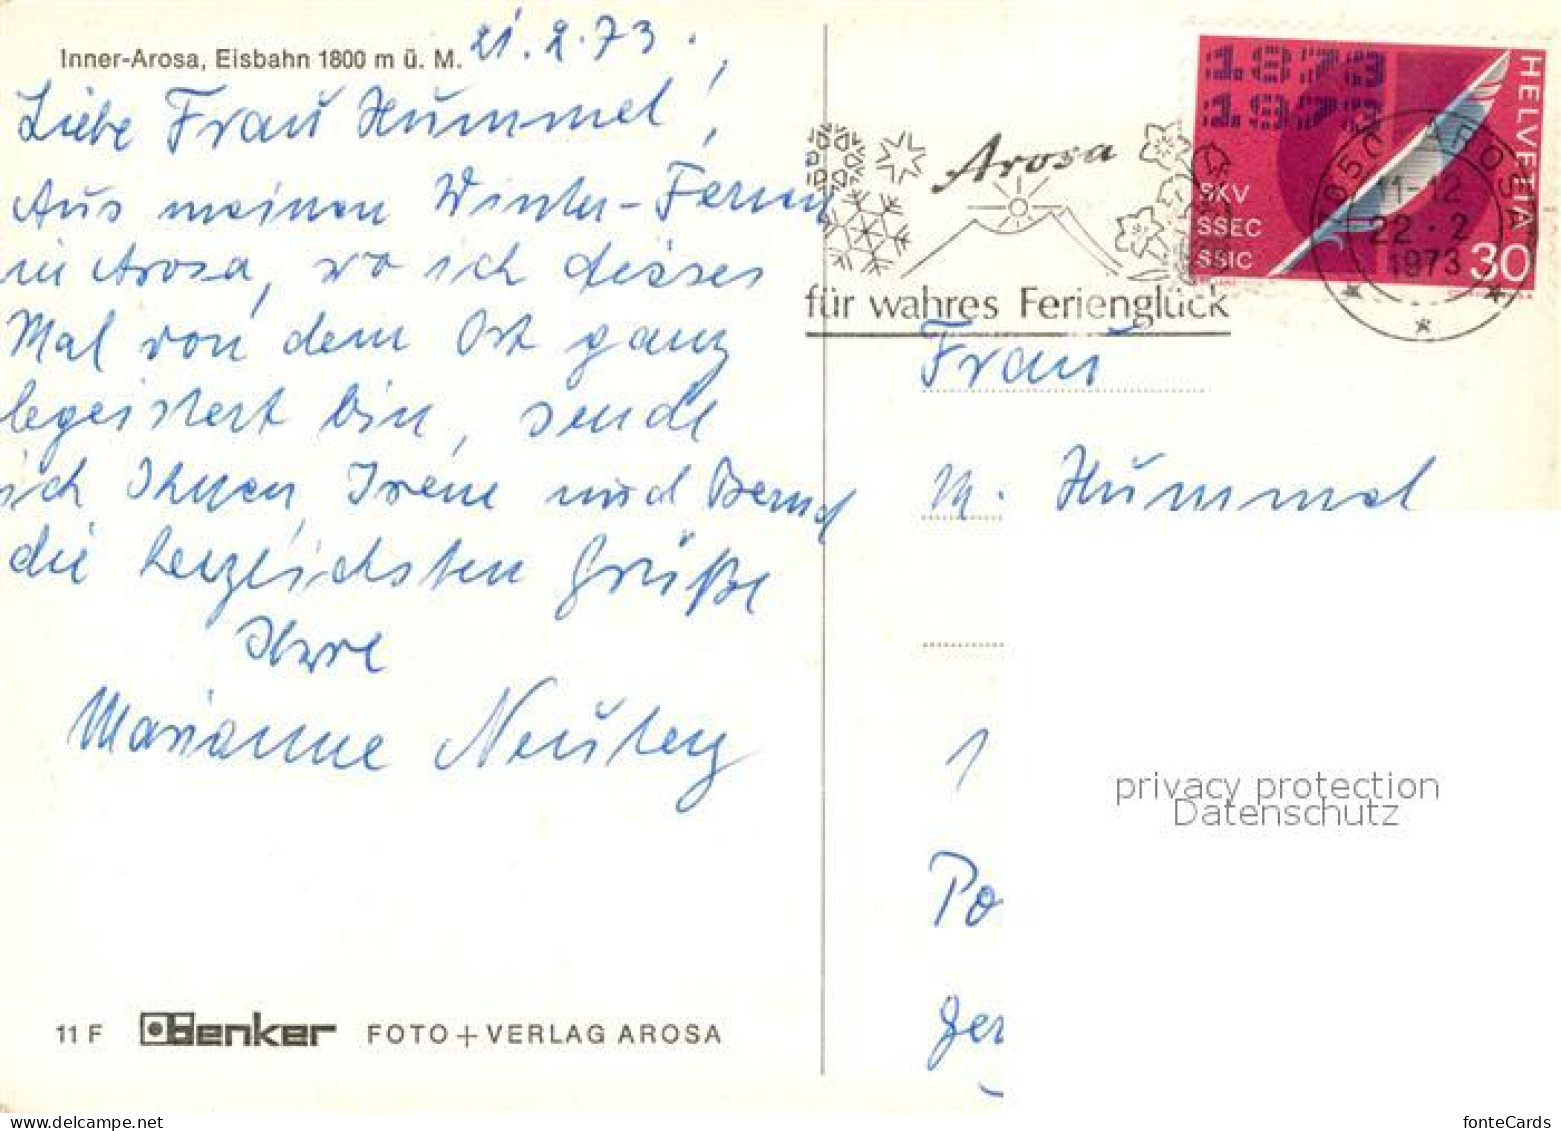 Inner-Arosa, Eisbahn 1800 m ü. M.
21.2.73.
Liebe Frau Hummel!
Aus meinen Winter-Ferien
in Arosa, wo ich dieses
Mal von dem Ort ganz
begeistert bin, sende
ich Ihnen, Irene und Bernd
die herzlichsten Grüße
Ihre
Marianne
11 F benker FOTO + VERLAG AROSA
Arosa
für wahres Ferienglück
1873
1973
SKV
SSEC
SSIC
HELVETIA
30
7050 AROSA
11-12
22.2
1973
Frau
M. Hummel
1
Po
Ger
privacy protection
Datenschutz
www.ansichtskartenversand.com
fonteCards